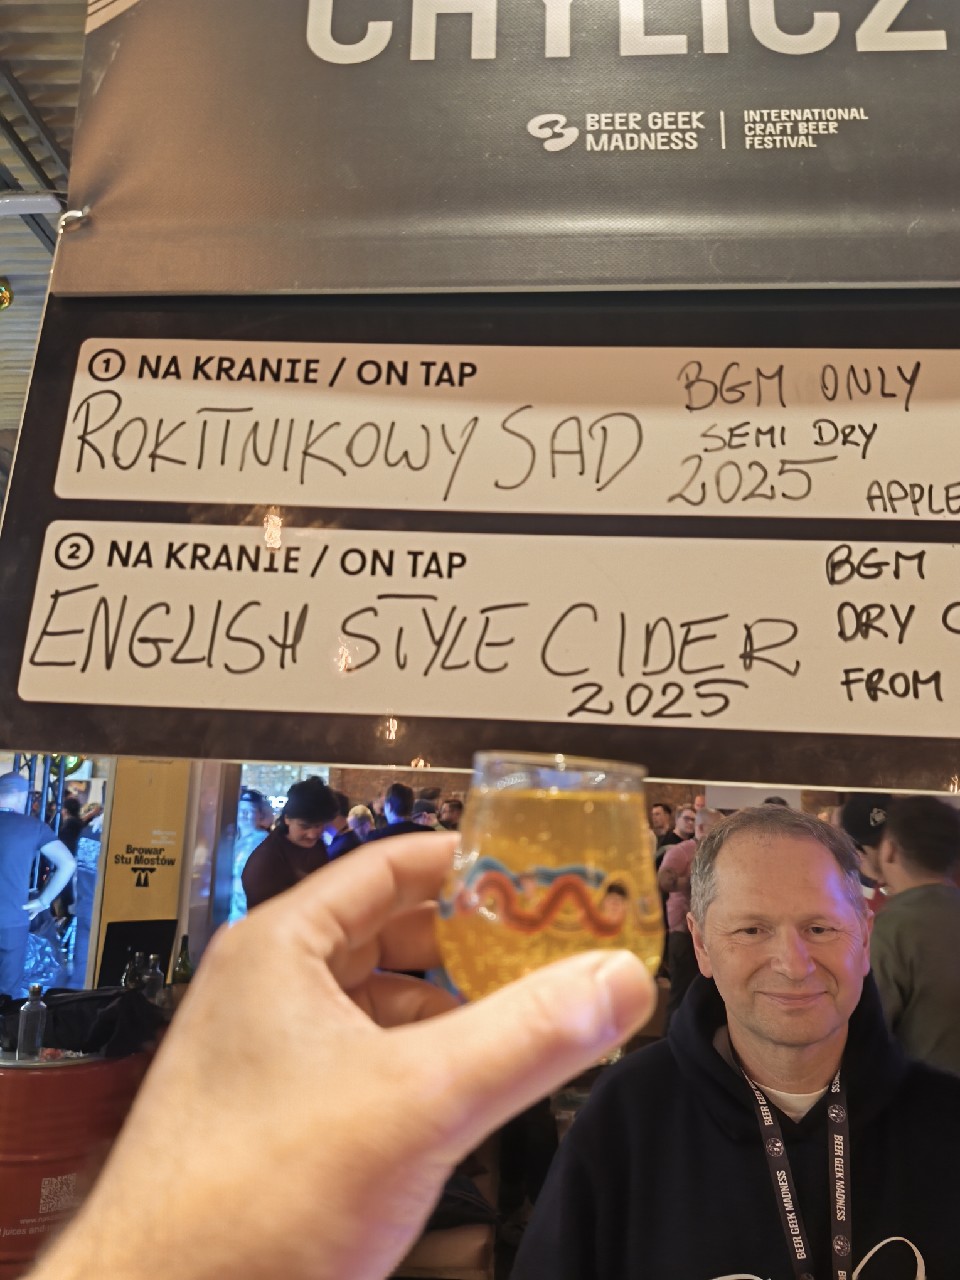 CHYLICZ
BEER GEEK
MADNESS
INTERNATIONAL
CRAFT BEER
FESTIVAL
1 NA KRANIE / ON TAP
ROKITNIKOWY SAD
BGM ONLY
SEMI DRY
2025
APPLE
2 NA KRANIE / ON TAP
ENGLISH STYLE CIDER
2025
BGM
DRY C
FROM
Browar
Stu Mostów
BEER GEEK
BEER GEEK MADNESS
BEER GEEK MADNESS